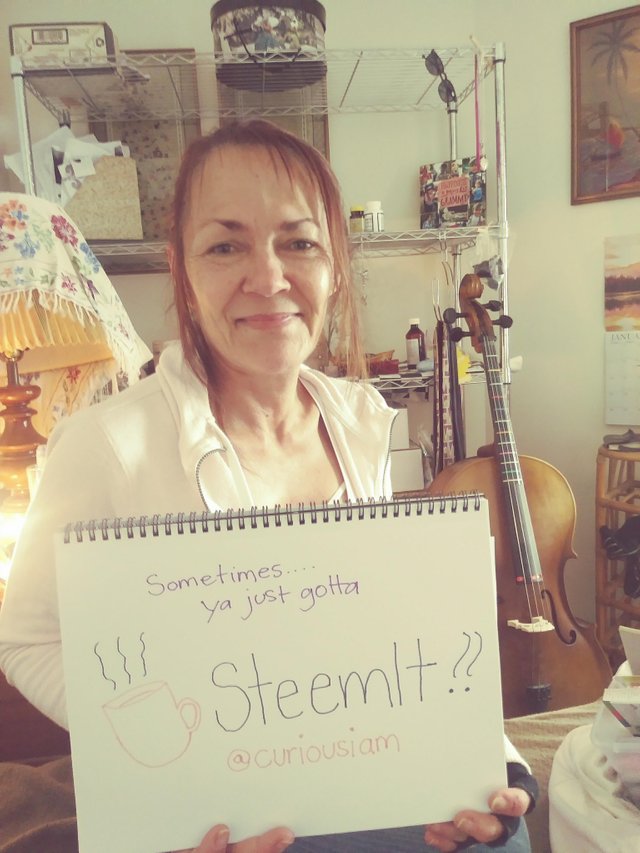 Sometimes....
ya just gotta
SteemIt !!
@curiousiam
JANUA